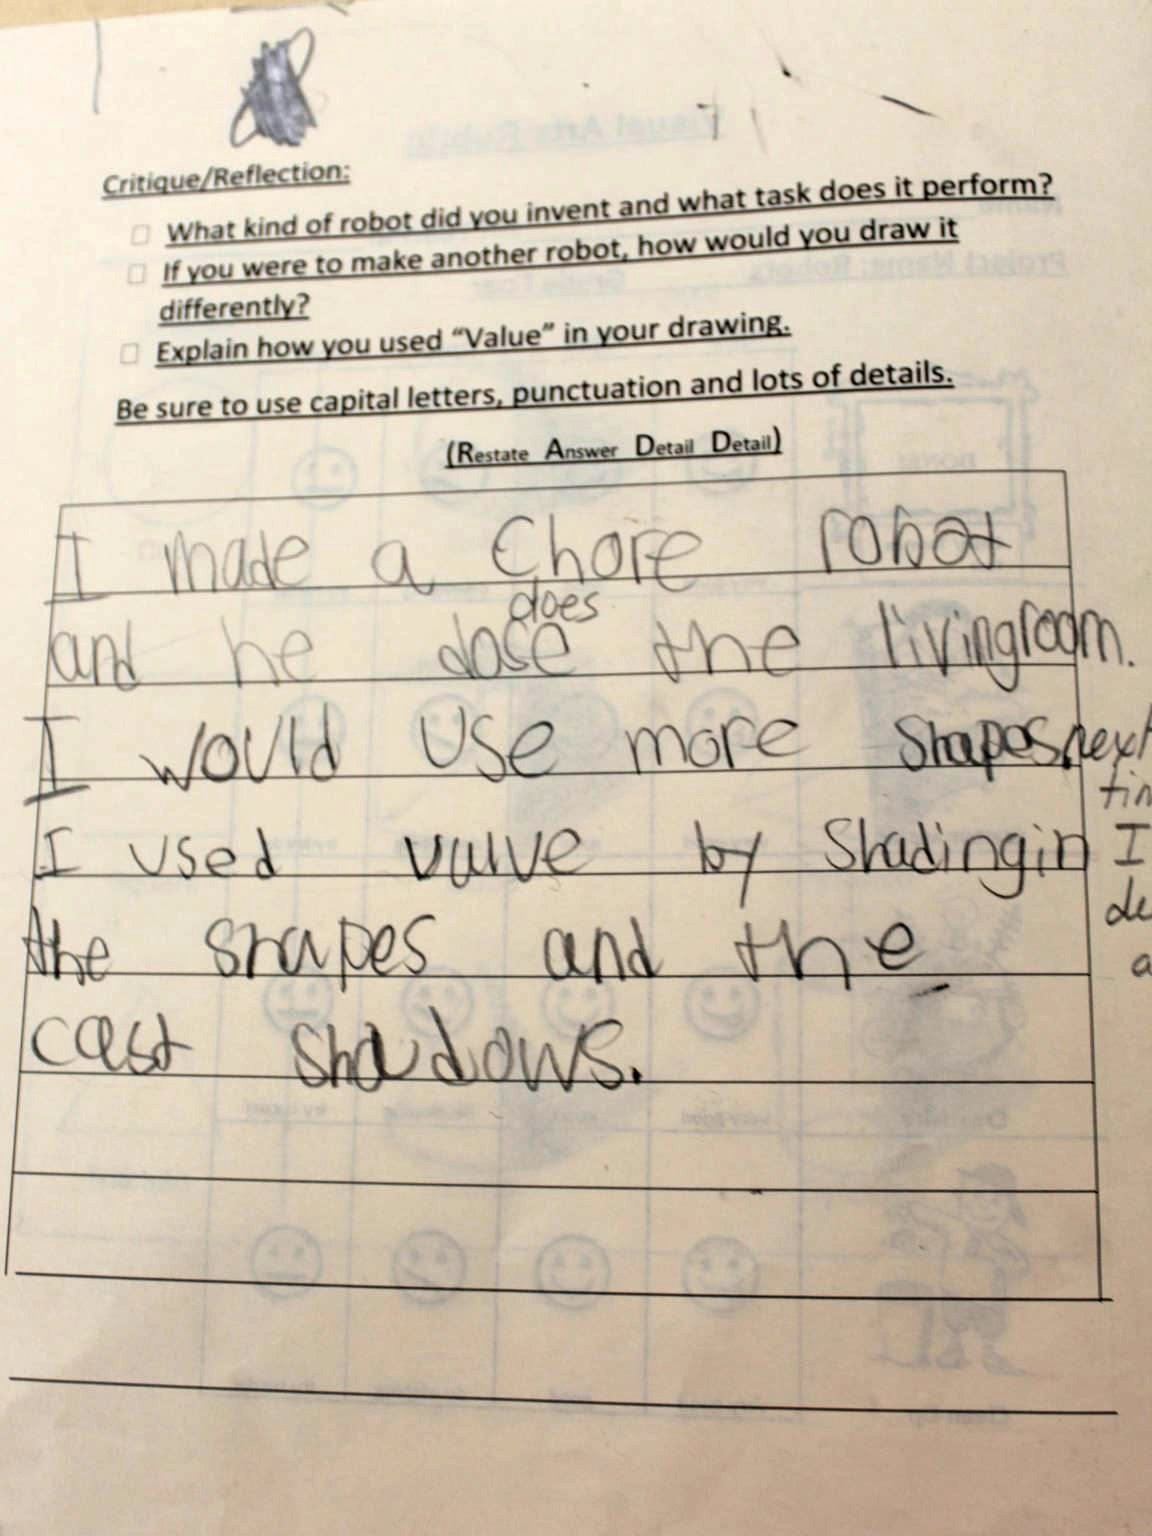 Critique/Reflection:
What kind of robot did you invent and what task does it perform?
If you were to make another robot, how would you draw it
differently?
Explain how you used “Value” in your drawing.
Be sure to use capital letters, punctuation and lots of details.
(Restate Answer Detail Detail)
I made a Chore robot
does
and he dose the livingroom.
I would use more shapes next
I used valve by Shadingin I
the shapes and the
cast shadows.